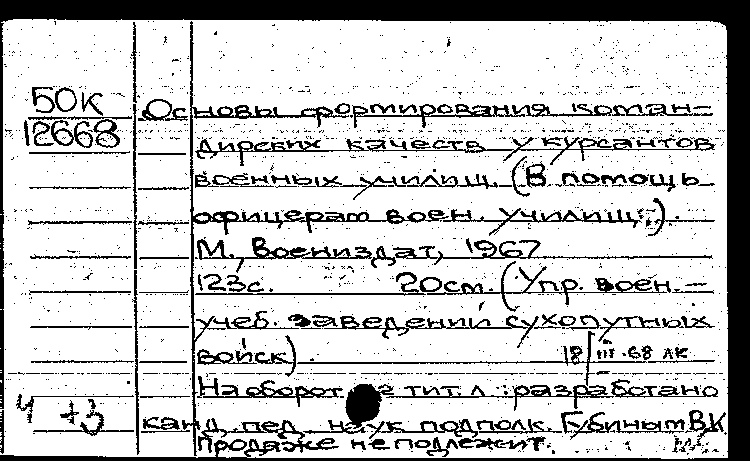 50к
12663
Основы формирования коман-
дирских качеств у курсантов
военных училищ. (В помощь
офицерам воен. училищ).
М., Воениздат, 1967
123с. 20см. (Упр. воен.-
учеб. заведений сухопутных
войск).
18/III-68 лк
На оборот тит. л.: разработано
4 +3
канд. пед. наук подполк. Губиным В.К
Продаже не подлежит.